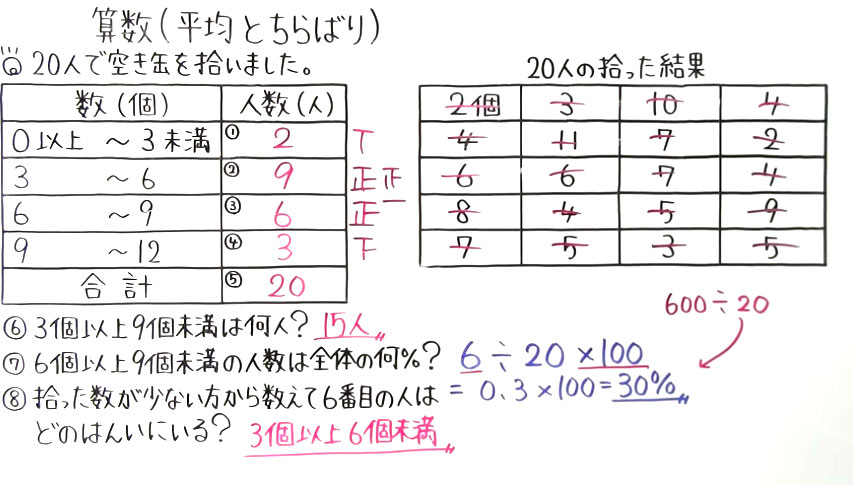 算数(平均とちらばり)
20人で空き缶を拾いました。
数(個) 人数(人)
0以上 ~3未満 ① 2 T
3 ~6 ② 9 正正
6 ~9 ③ 6 正一
9 ~12 ④ 3 下
合計 ⑤ 20
20人の拾った結果
2個 3 10 4
4 11 7 2
6 6 7 4
8 4 5 9
7 5 3 5
600÷20
⑥ 3個以上9個未満は何人? 15人
⑦ 6個以上9個未満の人数は全体の何%? 6÷20×100
= 0.3×100=30%
⑧ 拾った数が少ない方から数えて6番目の人は
どのはんいにいる? 3個以上6個未満